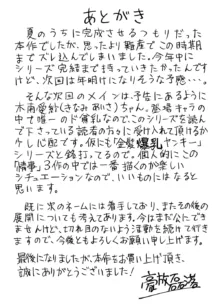 あとがき
夏のうちに完成させるつもりだった
本作でしたが、思ったより難産でこの時期
までズレ込んでしまいました。今年中に
シリーズ完結まで持っていきたかったんです
けど、次回は年明けになりそうな予感…。
そんな次回のメインは、予告にあるように
ちゃん。登場キャラの
中で唯一のド貧乳なのでこのシリーズを読ん
で下さっている読者の方々に受け入れて頂けるか
チト心配です。仮にも「金髪爆乳ヤンキー」
シリーズと銘打ってるので。個人的にこの
3作の中では一番描くのが楽しい
シチュエーションなので、いいものにはなると
思います。
既に次のネームには着手しており、またその後の
展開についても考えてあります。今はまだ公にでき
ませんけど、切れ目のないよう活動を続けて行き
ますので、今後ともよろしくお願い申し上げます。
最後になりましたが、本作をお買い上げ頂き、
誠にありがとうございました!